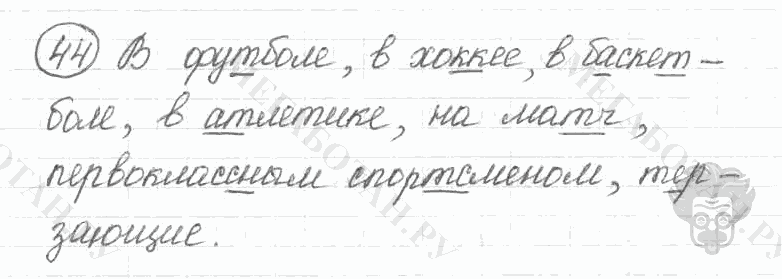 44 В футболе, в хоккее, в баскет-
боле, в атлетике, на матч,
первоклассным спортсменом, тер-
зающие.
МЕГАБОТАН.РУ